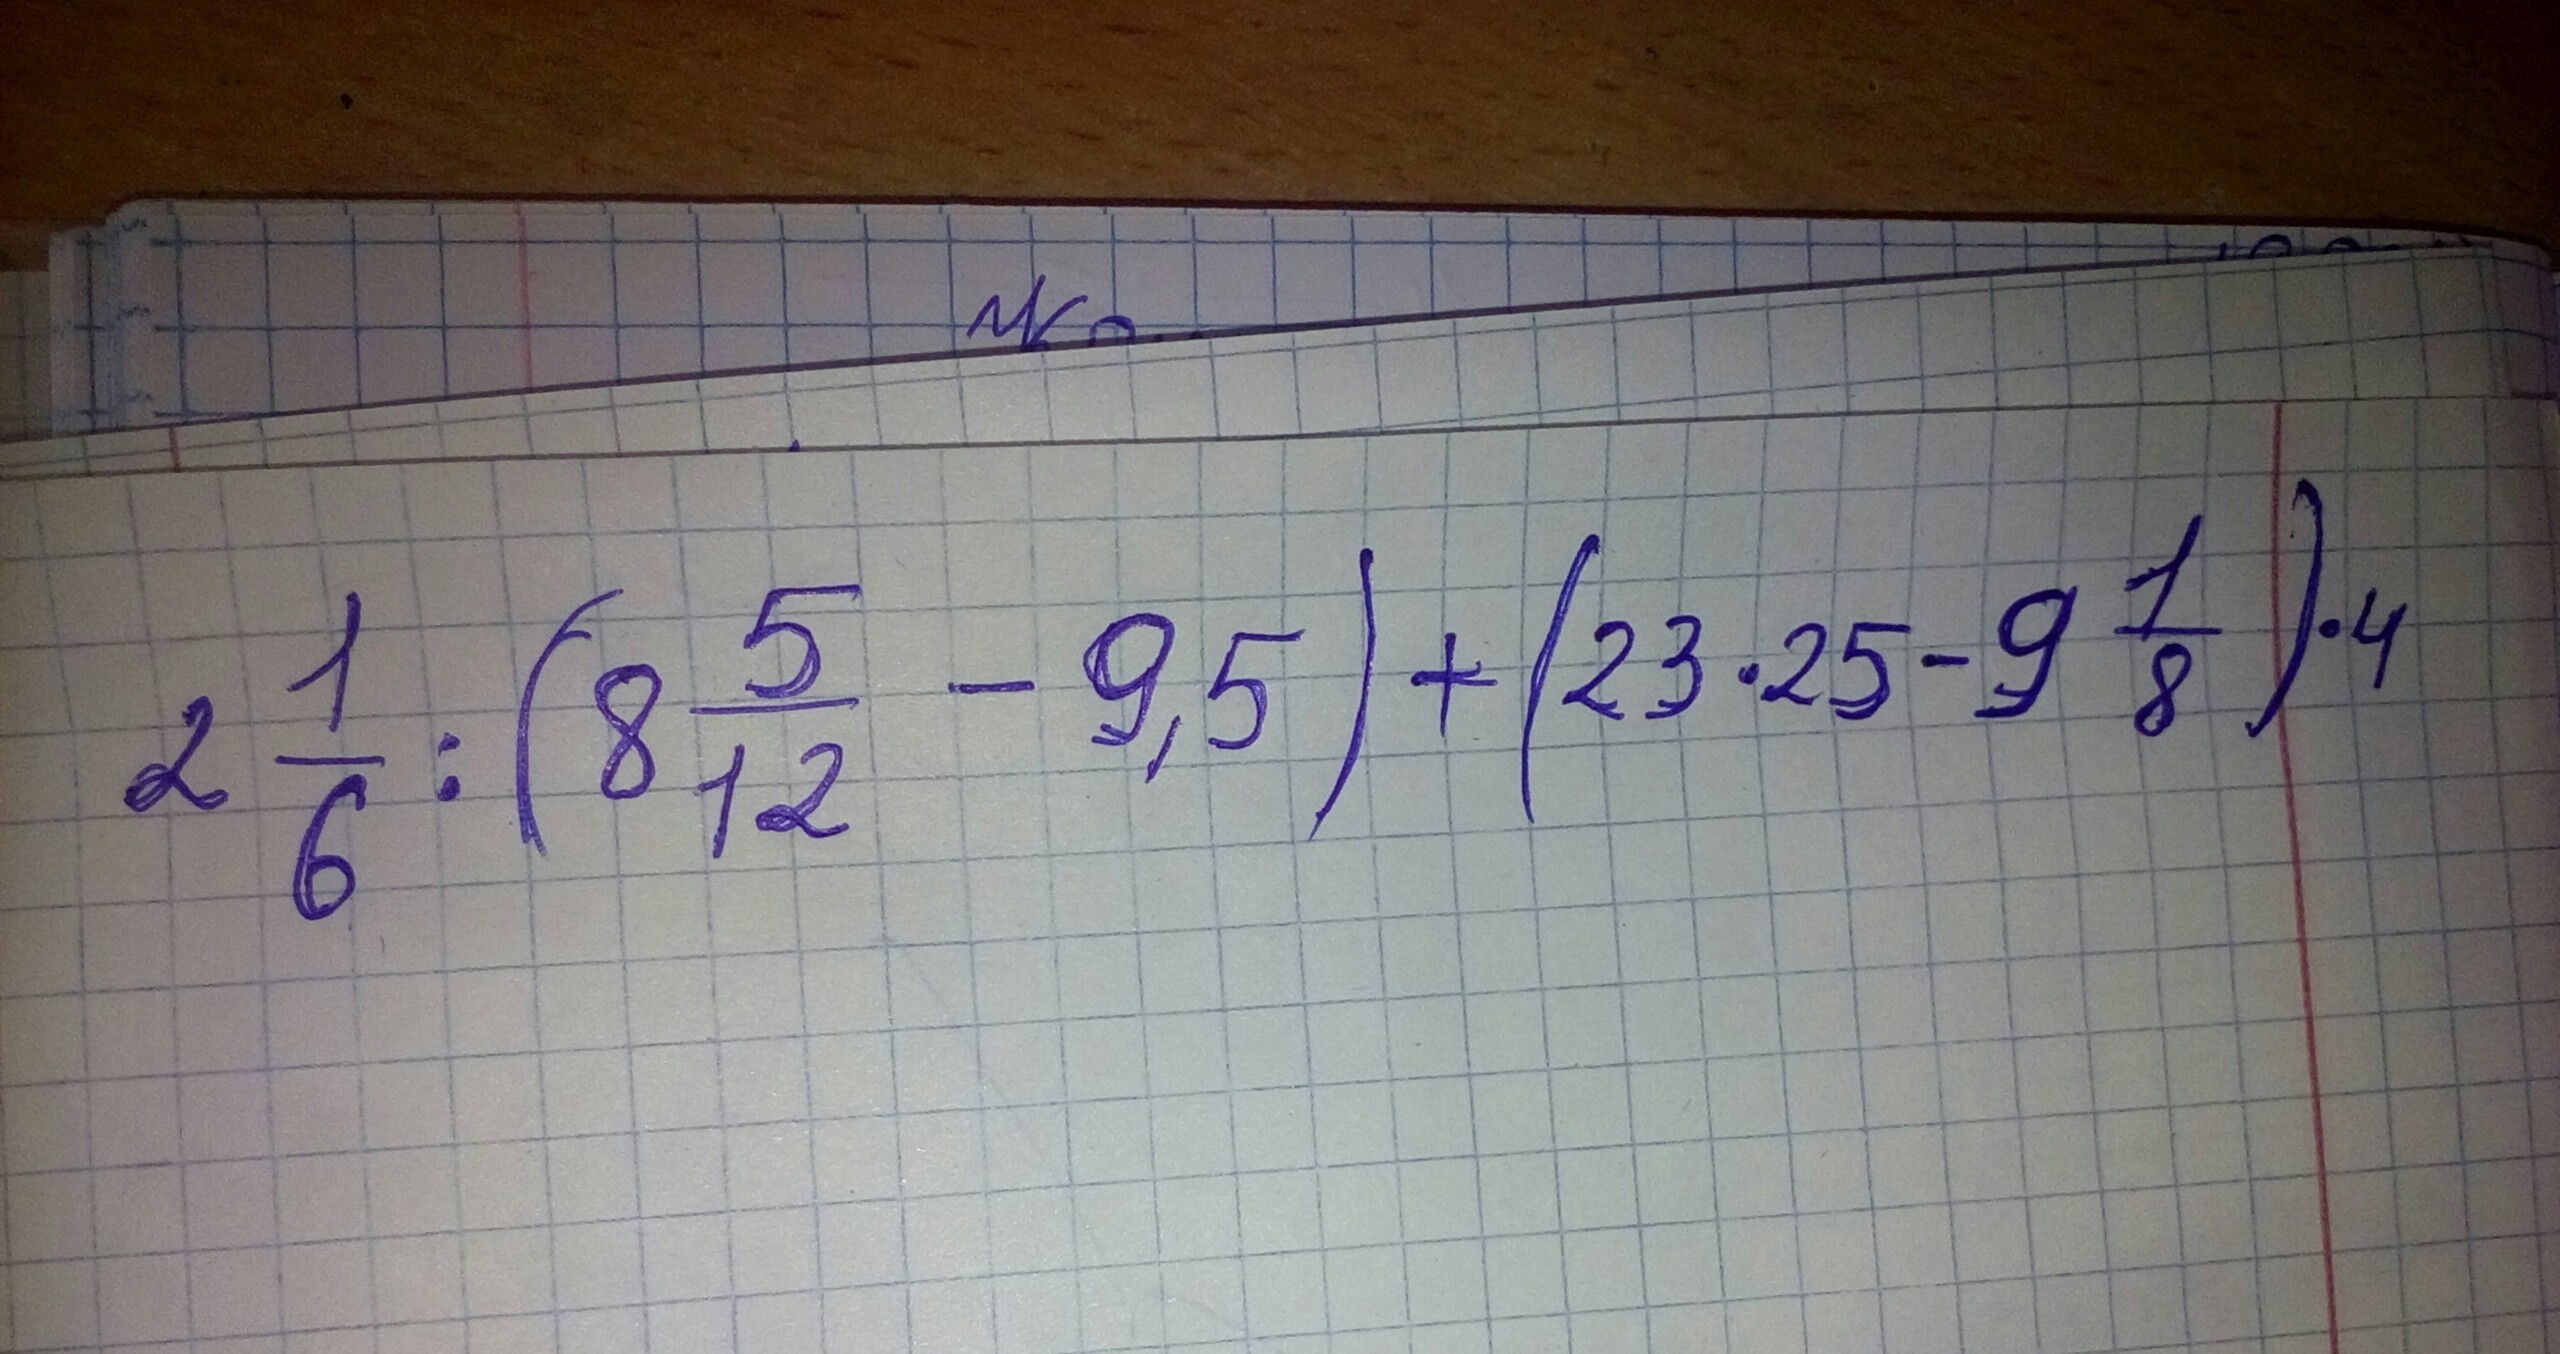 2 1/6 : (8 5/12 - 9,5) + (23·25 - 9 1/8)·4